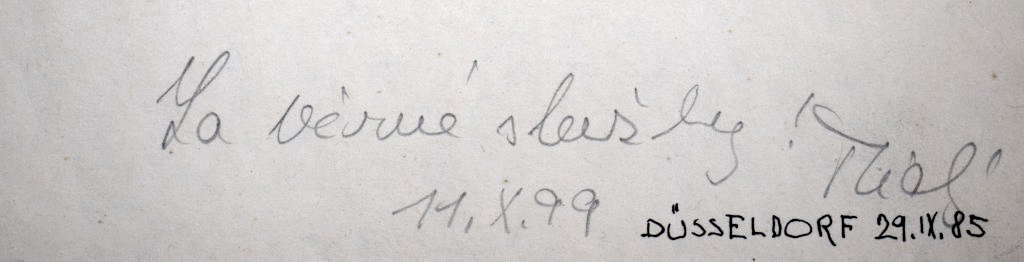 Za věrné služby!
11.X.99
DÜSSELDORF 29.IX.85